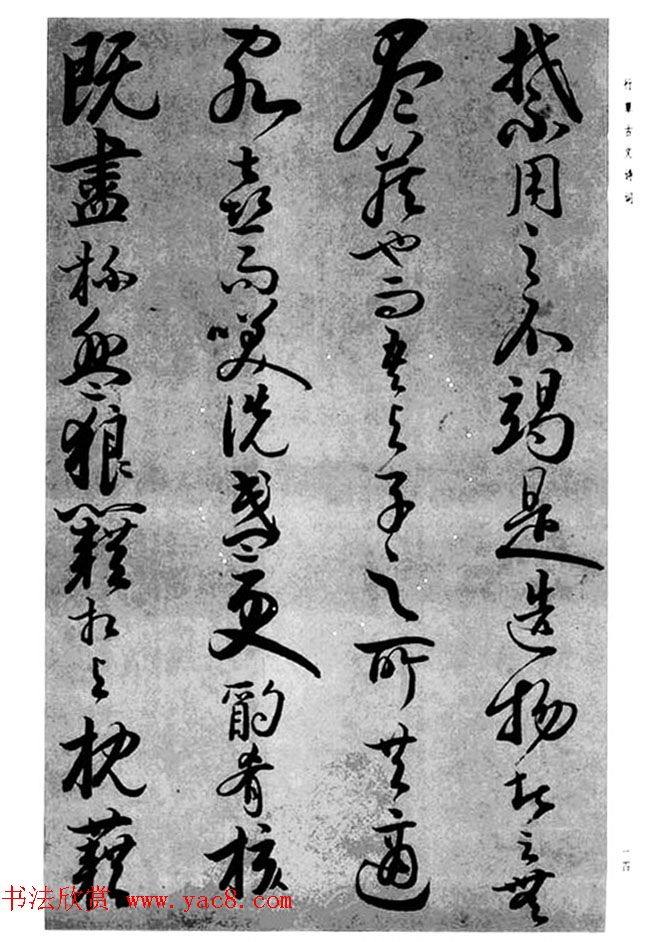 禁用之不竭是造物者之無
盡藏也而吾與子之所共適
客喜而咲洗盞更酌肴核
既盡杯盤狼籍相與枕藉
行草古文诗词
书法欣赏 www.yac8.com